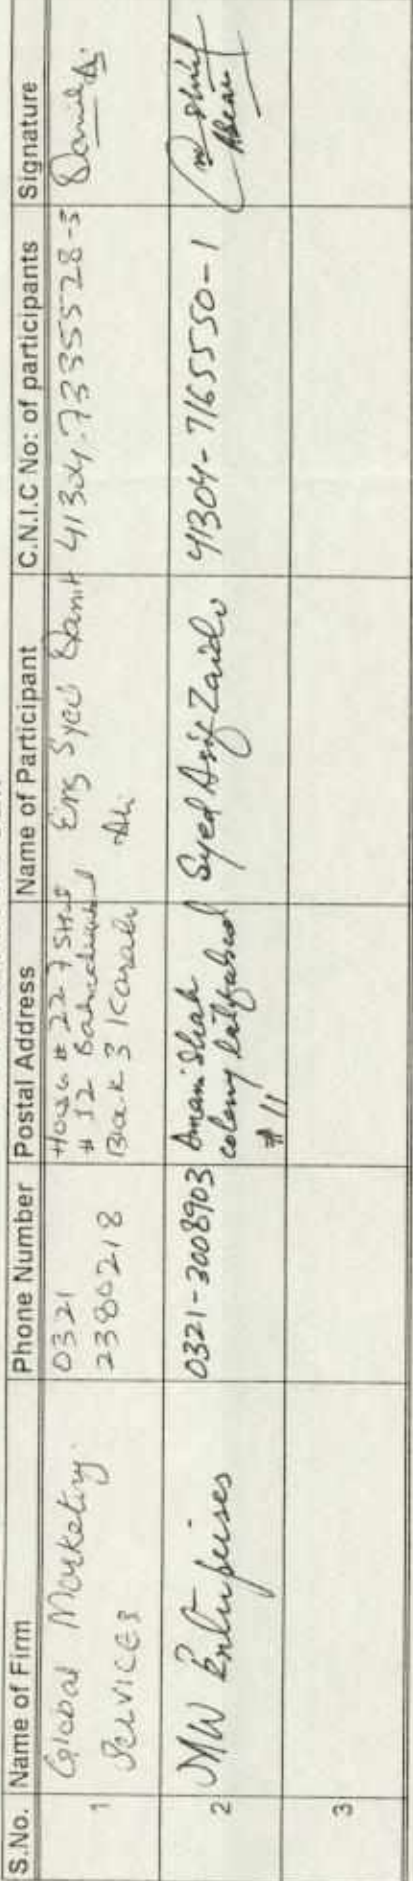 S.No. Name of Firm Phone Number Postal Address Name of Participant C.N.I.C No: of participants Signature
1 Global Marketing Services 0321 2380218 House # 227 Street # 12 Block 3 Karachi Eng Syed Ali 41304-7335528-5
2 MW Enterprises 0321-3008903 Amani Shah colony latifabad # 11 Syed Asif Zaidi 41304-7165550-1
3